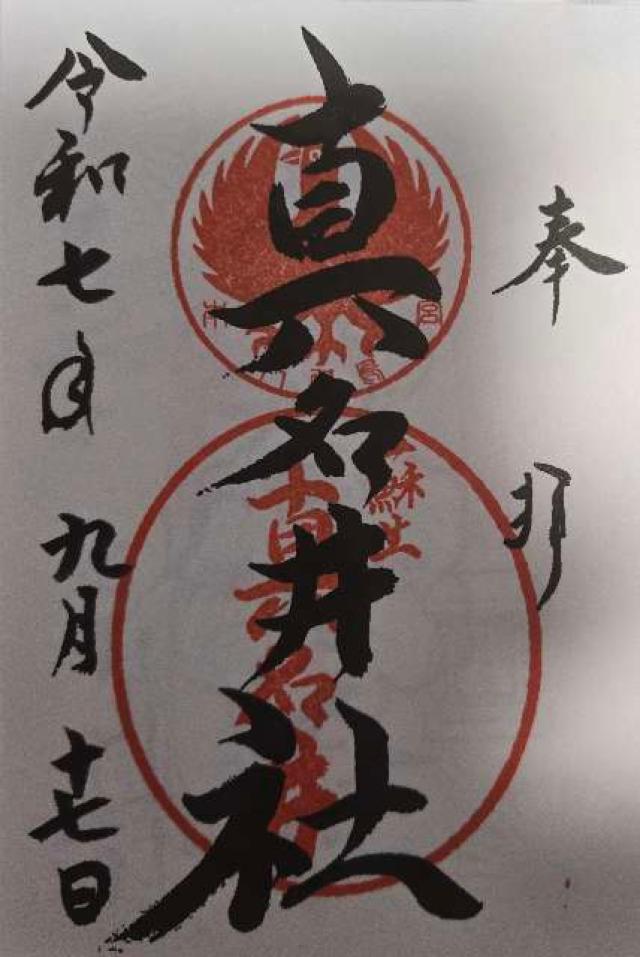 奉拝
真名井社
蘇生
真名井
令和七年 九月 十七日